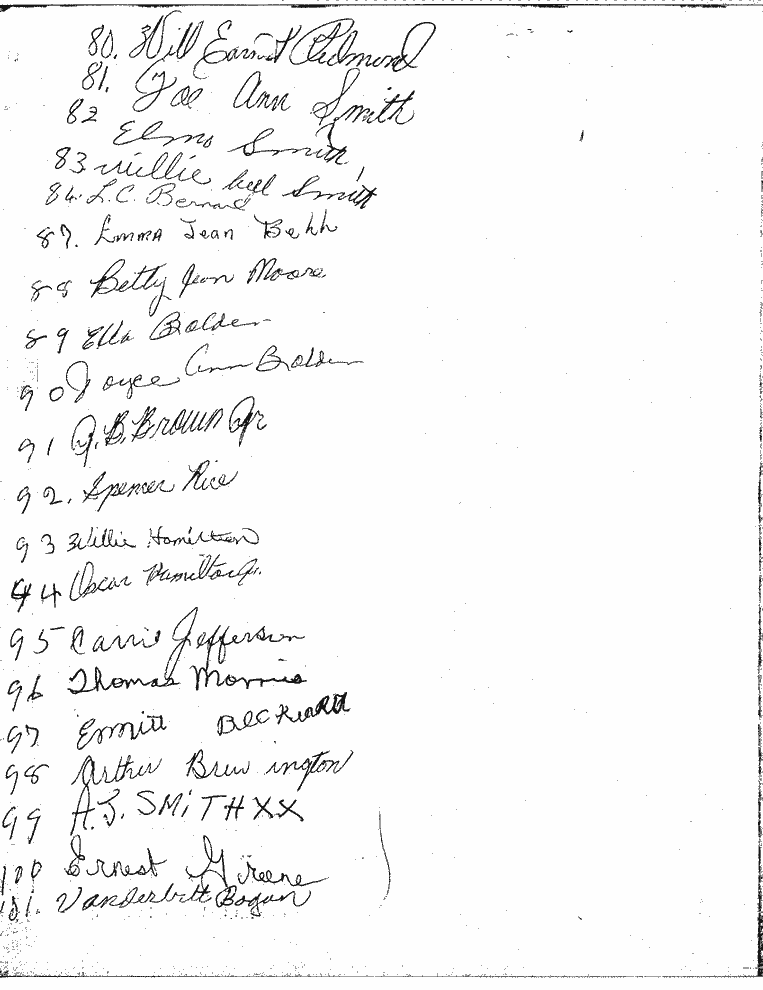 80. Will Earnest Redmond
81. Joe Ann Smith
82
Elmo Smith
83 Willie bell Smith
86. L.C. Bernard
87. Emma Jean Behh
88 Betty Jean Moore
89 Ella Bolden
90 Joyce Ann Bolden
91 J.B. Brown Jr
92. Spencer Rice
93 Willie Hamilton
94 Oscar Hamilton Jr.
95 Carrie Jefferson
96 Thomas Morris
97 Emmitt
98 Arther Brewington
99 A.J. SMiTH XX
100 Ernest Greene
101. Vanderbilt Bogan